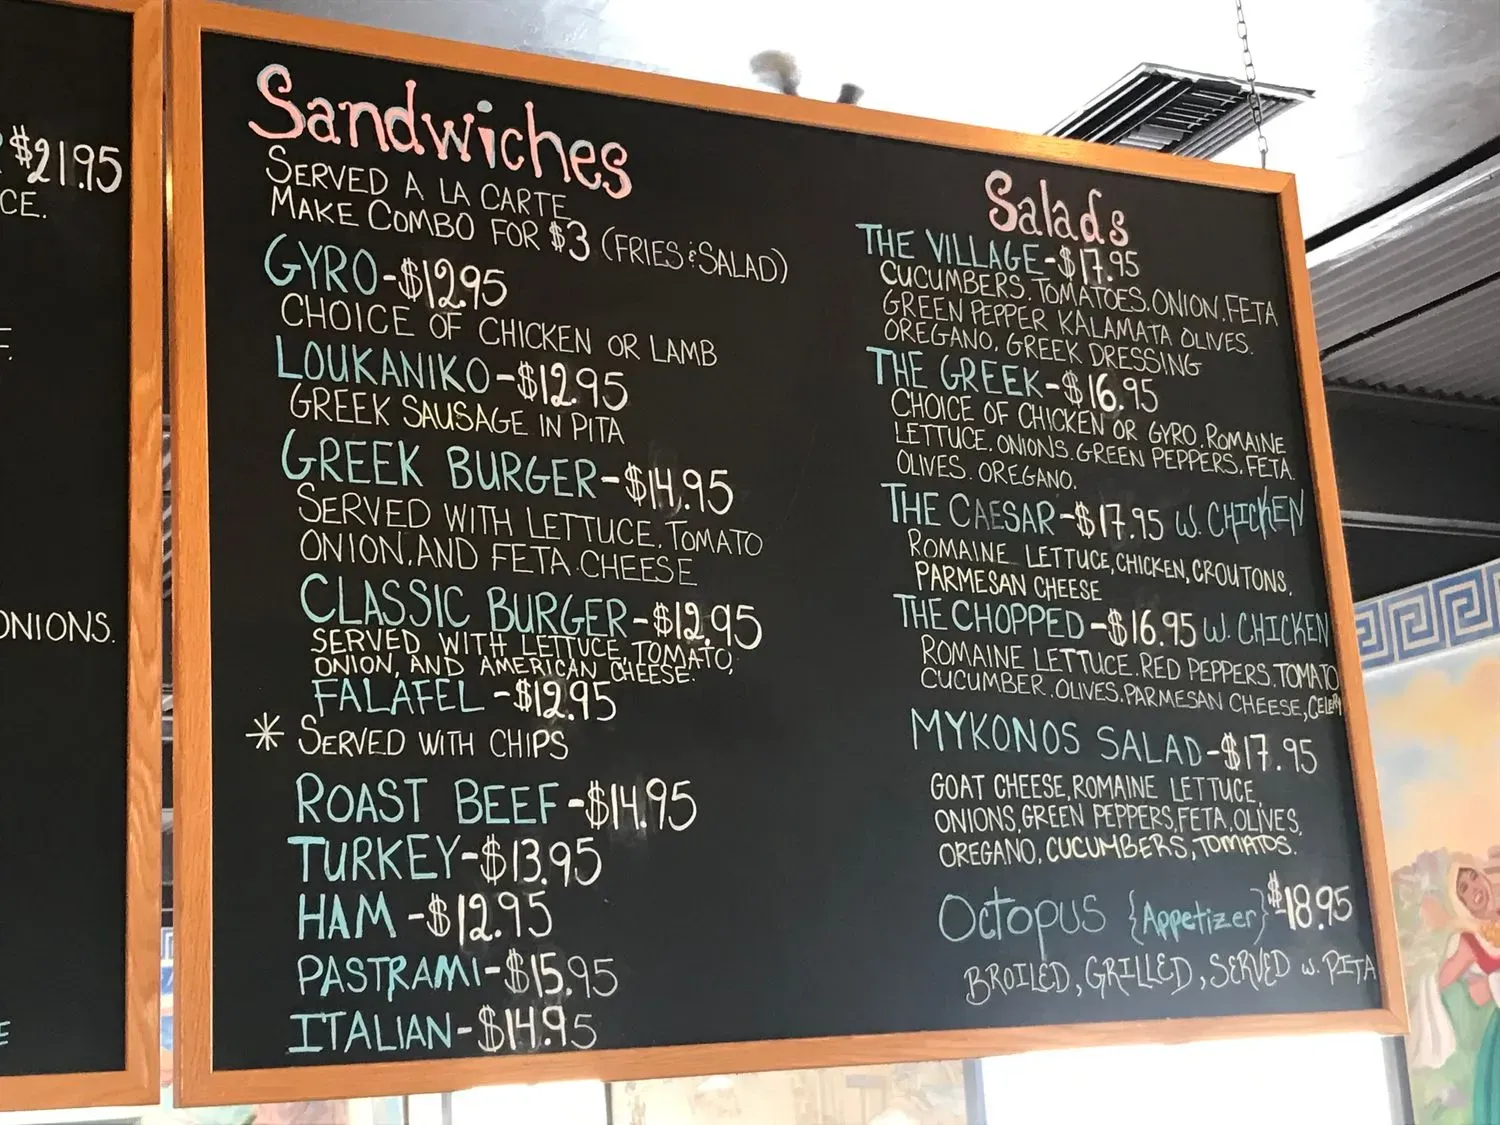 $21.95
CE.
ONIONS.
Sandwiches
SERVED A LA CARTE
MAKE COMBO FOR $3 (FRIES & SALAD)
GYRO-$12.95
CHOICE OF CHICKEN OR LAMB
LOUKANIKO-$12.95
GREEK SAUSAGE IN PITA
GREEK BURGER-$14.95
SERVED WITH LETTUCE, TOMATO
ONION, AND FETA CHEESE
CLASSIC BURGER-$12.95
SERVED WITH LETTUCE, TOMATO,
ONION, AND AMERICAN CHEESE.
FALAFEL-$12.95
* SERVED WITH CHIPS
ROAST BEEF-$14.95
TURKEY-$13.95
HAM-$12.95
PASTRAMI-$15.95
ITALIAN-$14.95
Salads
THE VILLAGE-$17.95
CUCUMBERS. TOMATOES. ONION. FETA
GREEN PEPPER KALAMATA OLIVES.
OREGANO. GREEK DRESSING
THE GREEK-$16.95
CHOICE OF CHICKEN OR GYRO. ROMAINE
LETTUCE. ONIONS. GREEN PEPPERS. FETA.
OLIVES. OREGANO.
THE CAESAR-$17.95 W. CHICKEN
ROMAINE LETTUCE, CHICKEN, CROUTONS.
PARMESAN CHEESE
THE CHOPPED-$16.95 W. CHICKEN
ROMAINE LETTUCE. RED PEPPERS. TOMATO
CUCUMBER. OLIVES. PARMESAN CHEESE, CELERY
MYKONOS SALAD-$17.95
GOAT CHEESE, ROMAINE LETTUCE,
ONIONS, GREEN PEPPERS, FETA, OLIVES,
OREGANO, CUCUMBERS, TOMATOS.
OCTOPUS {Appetizer} $18.95
BROILED, GRILLED, SERVED W. PITA